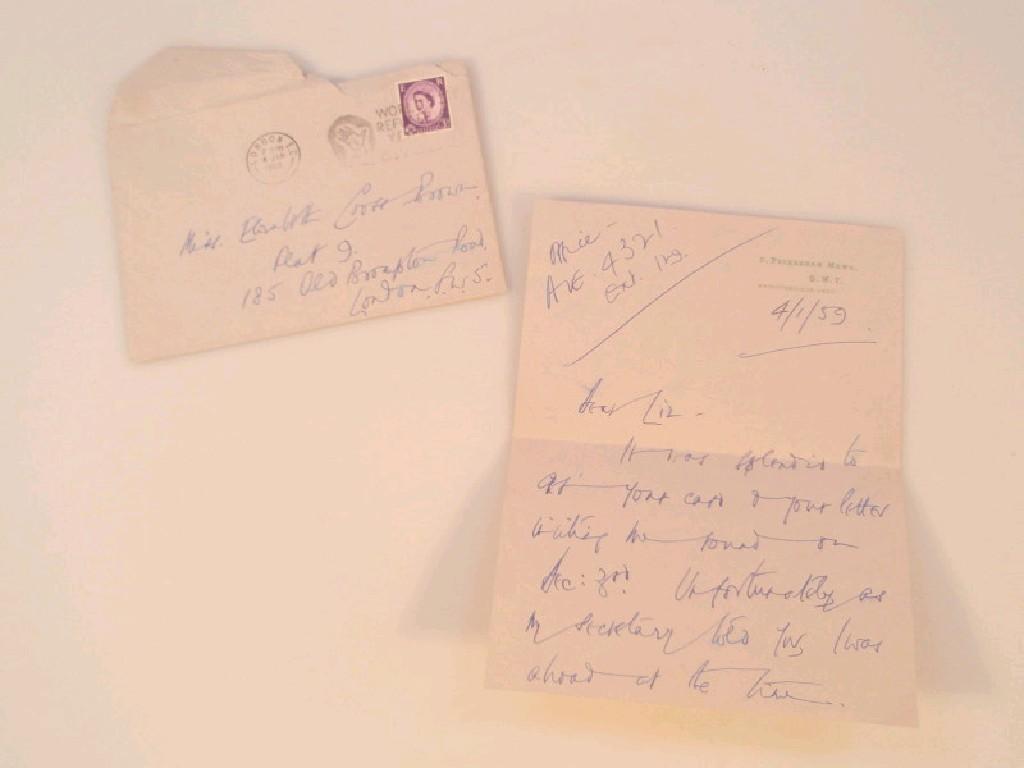 LONDON
WOR
REF
YE
Miss. Elizabeth Cross Brown.
Flat 9.
185 Old Brompton Road,
London. S.W.5.
Office -
AVE. 4321.
Ext. 129.
Pelham Mews,
S.W.7.
4/1/59
Dear Liz -
It was splendid to
get your card & your letter
inviting me round on
Dec: 30th. Unfortunately as
my secretary told you, I was
abroad at the time.